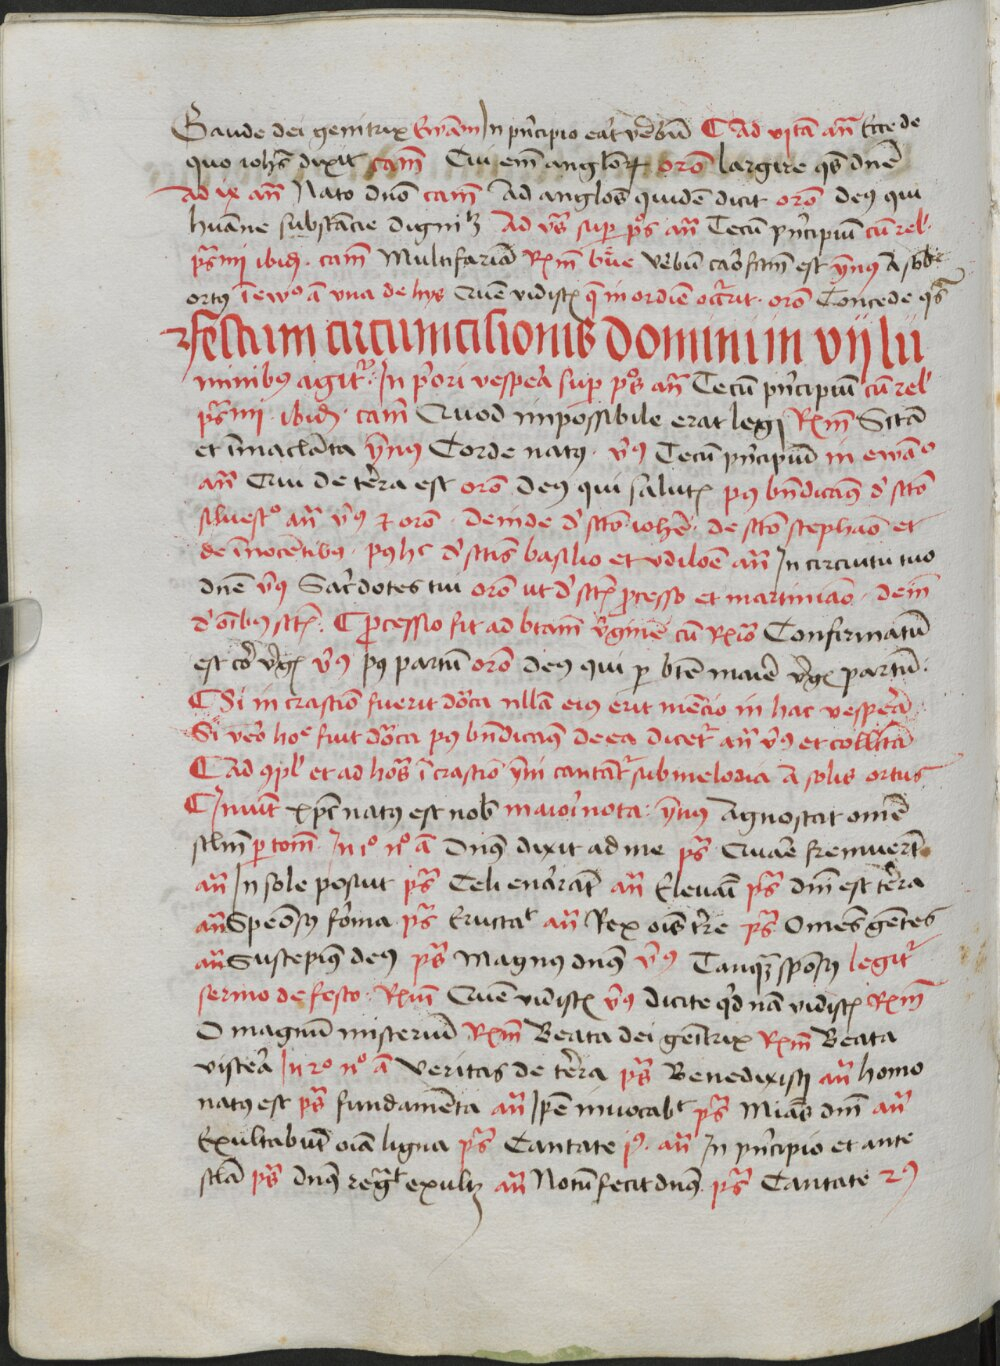 Gaude dei genitrix Ewam In pncipio eat verbu Ad vjta an Ecce de
quo iohs dixit cam Cui em anglor oro largire qs dne
Ad ix an Nato dno cam Ad anglos quide dicit oro deq qui
huane substacie digni Ad vs sup ps an Tecu pncipiu cu rel
ps iiij ibid cam Multifaria Rm bue verbu caro fcm est ynq A sol
ortq i ewo a vna de hys Que vidist q in ordie ocrit oro Concede qs
Festum circumcisionis domini in vij lu
minibq agit In pori vespera sup pos an Tecu pncipiu cu rel
ps iiij ibid cam Quod impossibile erat legi Rm Scta
et imaclata ynq Corde natq vq Tecu pncipiu in ewao
an Qui de terra est oro deq qui salut pq bndicaq d scto
siluesto an vq et oro deinde d scto iohe de scto stephao et
de inocetibq pq hc d sctis basilio et odiloe an In circuitu tuo
dne vq Sacdotes tui oro ut d sct pcesso et martiniao dein
d oibq sct Pcessio fit ad btam vgine cu Rio Confirmatu
est cor vgi vq pq partu oro deq qui p bte maie vgi partu
Si in crastio fuerit doica nlla eiq erit mecio in hac vespera
Si vero hoc fuit doica pq bndicaq de ea dicet an vq et collcta
Ad 9pl et ad hoas i crastio ymi cantat sub melodia A solis ortus
Inuit xpc natq est nob maiori nota ynq Agnoscat ome
sclm p totm In 1o no a Dnq dixit ad me ps Quae fremuert
an In sole posuit ps Celi enarrat an Eleuai ps dni est terra
an Speosq forma ps Eructat an Rex ois tre ps Omes getes
an Suscepiq deq ps Magnq dnq vq Tanq sposq legit
sermo de festo Rm Que vidist vq dicite qd na vidist Rm
O magnu misteriu Rm Beata dei geitrix Rm Beata
viscera In 2o no a Veritas de terra ps Benedixisti an homo
natq est ps fundameta an Ipe inuocabt ps Mias dni an
Exultabut oia ligna ps Cantate io an In pncipio et ante
scla ps dnq regt exult an Notu fecit dnq ps Cantate 2o